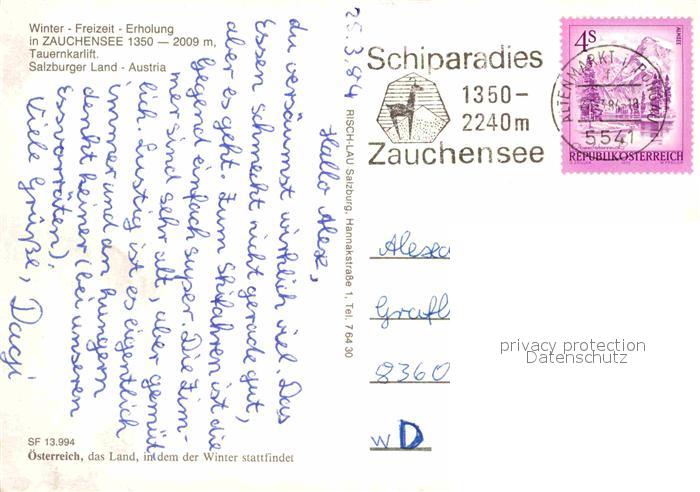 Winter - Freizeit - Erholung
in ZAUCHENSEE 1350 — 2009 m,
Tauernkarlift.
Salzburger Land - Austria
25.3.84
Hallo Alex,
du versäumst wirklich viel. Das
Essen schmeckt nicht gerade gut,
aber es geht. Zum Skifahren ist die
Gegend einfach super. Die Zim-
mer sind sehr alt, aber gemüt-
lich. Lustig ist es eigentlich
immer und an hungern
denkt keiner (bei unseren
Essvorräten).
Viele Grüße,
SF 13.994
Österreich, das Land, in dem der Winter stattfindet
RISCH-LAU Salzburg, Hannakstraße 1, Tel. 7 64 30
Schiparadies
1350–
2240m
Zauchensee
4S
ALMSEE
ALTENMARKT
5541
REPUBLIK ÖSTERREICH
Alexa
Grafl
8360
WD
privacy protection
Datenschutz